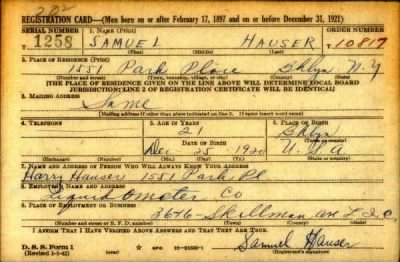 REGISTRATION CARD—(Men born on or after February 17, 1897 and on or before December 31, 1921)
SERIAL NUMBER 1. NAME (Print) ORDER NUMBER
1258 SAMUEL HAUSER 10817
(First) (Middle) (Last)
2. PLACE OF RESIDENCE (Print)
1551 Park Place Bklyn. N.Y
(Number and street) (Town, township, village, or city) (County) (State)
[THE PLACE OF RESIDENCE GIVEN ON THE LINE ABOVE WILL DETERMINE LOCAL BOARD
JURISDICTION; LINE 2 OF REGISTRATION CERTIFICATE WILL BE IDENTICAL]
3. MAILING ADDRESS
Same
(Mailing address if other than place indicated on line 2. If same insert word same)
4. TELEPHONE 5. AGE IN YEARS 6. PLACE OF BIRTH
21 Bklyn
DATE OF BIRTH (Town or county)
Dec 25 1920 U.S.A
(Exchange) (Number) (Mo.) (Day) (Yr.) (State or country)
7. NAME AND ADDRESS OF PERSON WHO WILL ALWAYS KNOW YOUR ADDRESS
Harry Hauser 1551 Park Pl
8. EMPLOYER'S NAME AND ADDRESS
Liquidometer Co
9. PLACE OF EMPLOYMENT OR BUSINESS
Skillman av L.I.C.
(Number and street or R. F. D. number) (Town) (County) (State)
I AFFIRM THAT I HAVE VERIFIED ABOVE ANSWERS AND THAT THEY ARE TRUE.
D. S. S. Form 1
(Revised 1-1-42) GPO Samuel Hauser
(Registrant's signature)